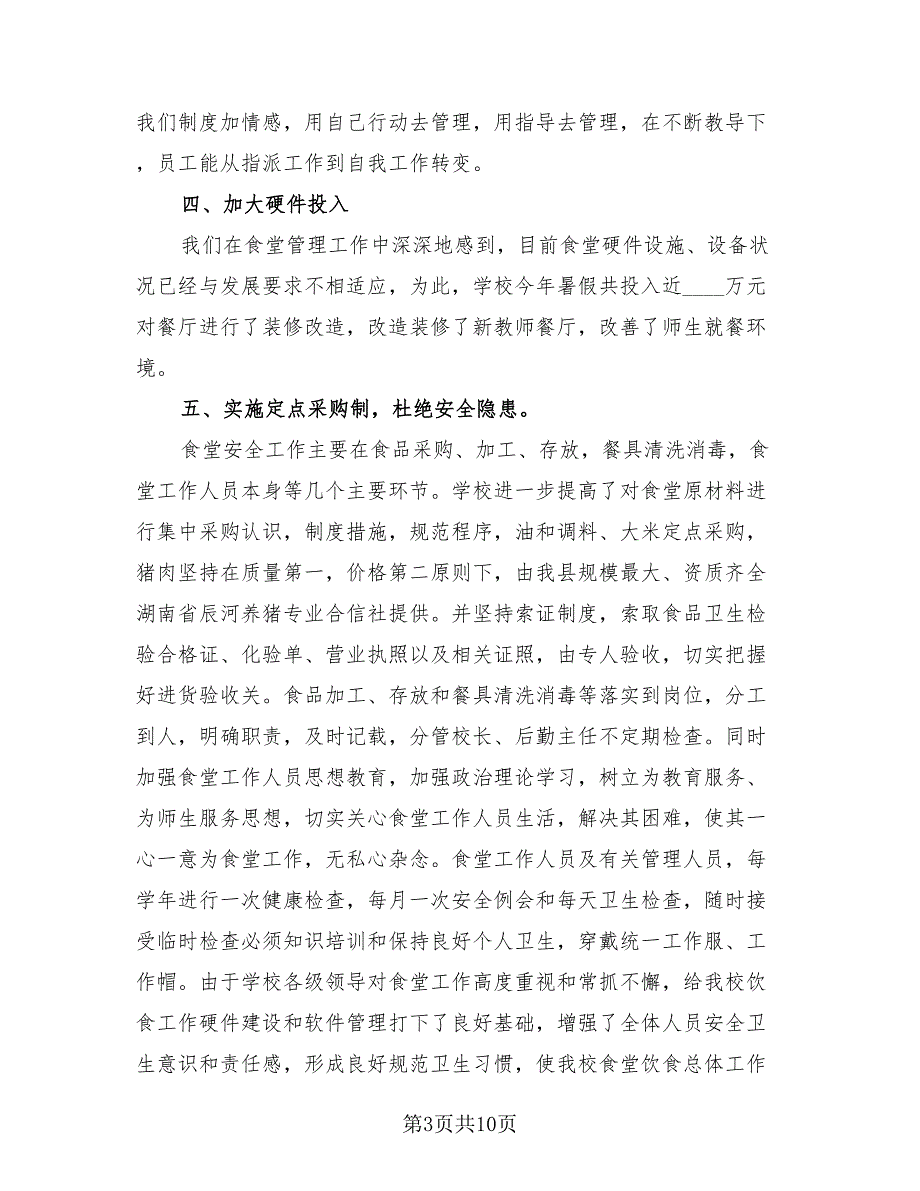 我们制度加情感，用自己行动去管理，用指导去管理，在不断教导下
，员工能从指派工作到自我工作转变。
四、加大硬件投入
我们在食堂管理工作中深深地感到，目前食堂硬件设施、设备状
况已经与发展要求不相适应，为此，学校今年暑假共投入近____万元
对餐厅进行了装修改造，改造装修了新教师餐厅，改善了师生就餐环
境。
五、实施定点采购制，杜绝安全隐患。
食堂安全工作主要在食品采购、加工、存放，餐具清洗消毒，食
堂工作人员本身等几个主要环节。学校进一步提高了对食堂原材料进
行集中采购认识，制度措施，规范程序，油和调料、大米定点采购，
猪肉坚持在质量第一，价格第二原则下，由我县规模最大、资质齐全
湖南省辰河养猪专业合信社提供。并坚持索证制度，索取食品卫生检
验合格证、化验单、营业执照以及相关证照，由专人验收，切实把握
好进货验收关。食品加工、存放和餐具清洗消毒等落实到岗位，分工
到人，明确职责，及时记载，分管校长、后勤主任不定期检查。同时
加强食堂工作人员思想教育，加强政治理论学习，树立为教育服务、
为师生服务思想，切实关心食堂工作人员生活，解决其困难，使其一
心一意为食堂工作，无私心杂念。食堂工作人员及有关管理人员，每
学年进行一次健康检查，每月一次安全例会和每天卫生检查，随时接
受临时检查必须知识培训和保持良好个人卫生，穿戴统一工作服、工
作帽。由于学校各级领导对食堂工作高度重视和常抓不懈，给我校饮
食工作硬件建设和软件管理打下了良好基础，增强了全体人员安全卫
生意识和责任感，形成良好规范卫生习惯，使我校食堂饮食总体工作
第3页共10页